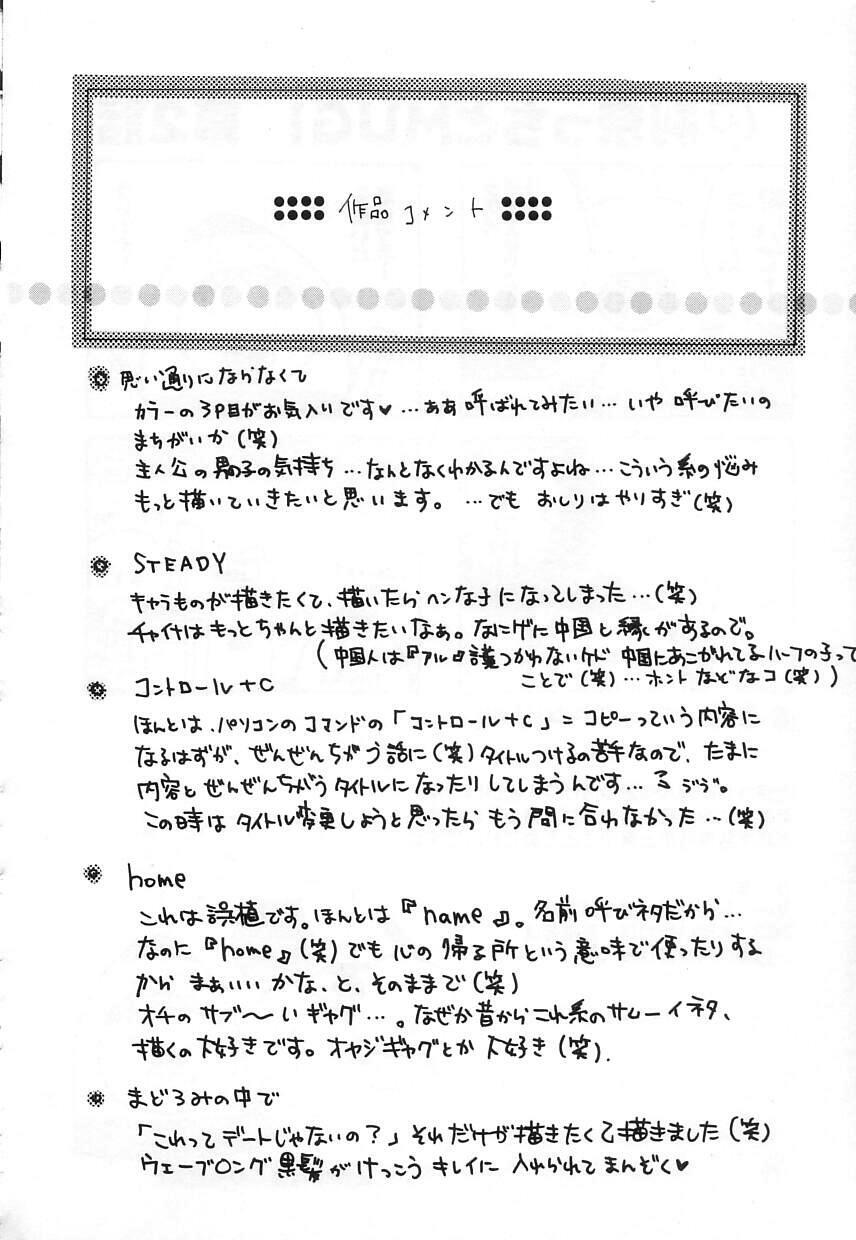 作品コメント
思い通りにならなくて
カラーの3P目がお気入りです♥…ああ 呼ばれてみたい…いや 呼びたいの
まちがいか(笑)
主人公の男の子の気持ち…なんとなくわかるんですよね…こういう系の悩み
もっと描いていきたいと思います。…でも おしりはやりすぎ(笑)
STEADY
キャラものが描きたくて、描いたらヘンな子になってしまった…(笑)
チャイナはもっとちゃんと描きたいなぁ。なにげに中国と縁があるので。
(中国人は『アル』語つかわないケド 中国にあこがれてるハーフの子って
ことで(笑)…ホント などなコ(笑))
コントロール+C
ほんとは、パソコンのコマンドの「コントロール+C」=コピーっていう内容に
なるはずが、ぜんぜんちがう話に(笑)タイトルつけるの苦手なので、たまに
内容とぜんぜんちがうタイトルになったりしてしまうんです…
この時は タイトル変更しようと思ったら もう間に合わなかった…(笑)
home
これは誤植です。ほんとは『name』。名前呼びネタだから…
なのに『home』(笑)でも 心の帰る所という意味で使ったりする
から まぁいいかな、と、そのままで(笑)
オチの サブ〜いギャグ…。なぜか昔からこれ系のサムーイネタ、
描くの大好きです。オヤジギャグとか 大好き(笑).
まどろみの中で
「これってデートじゃないの?」それだけが描きたくて描きました(笑)
ウェーブロング黒髪がけっこう キレイに 入れられて まんぞく♥